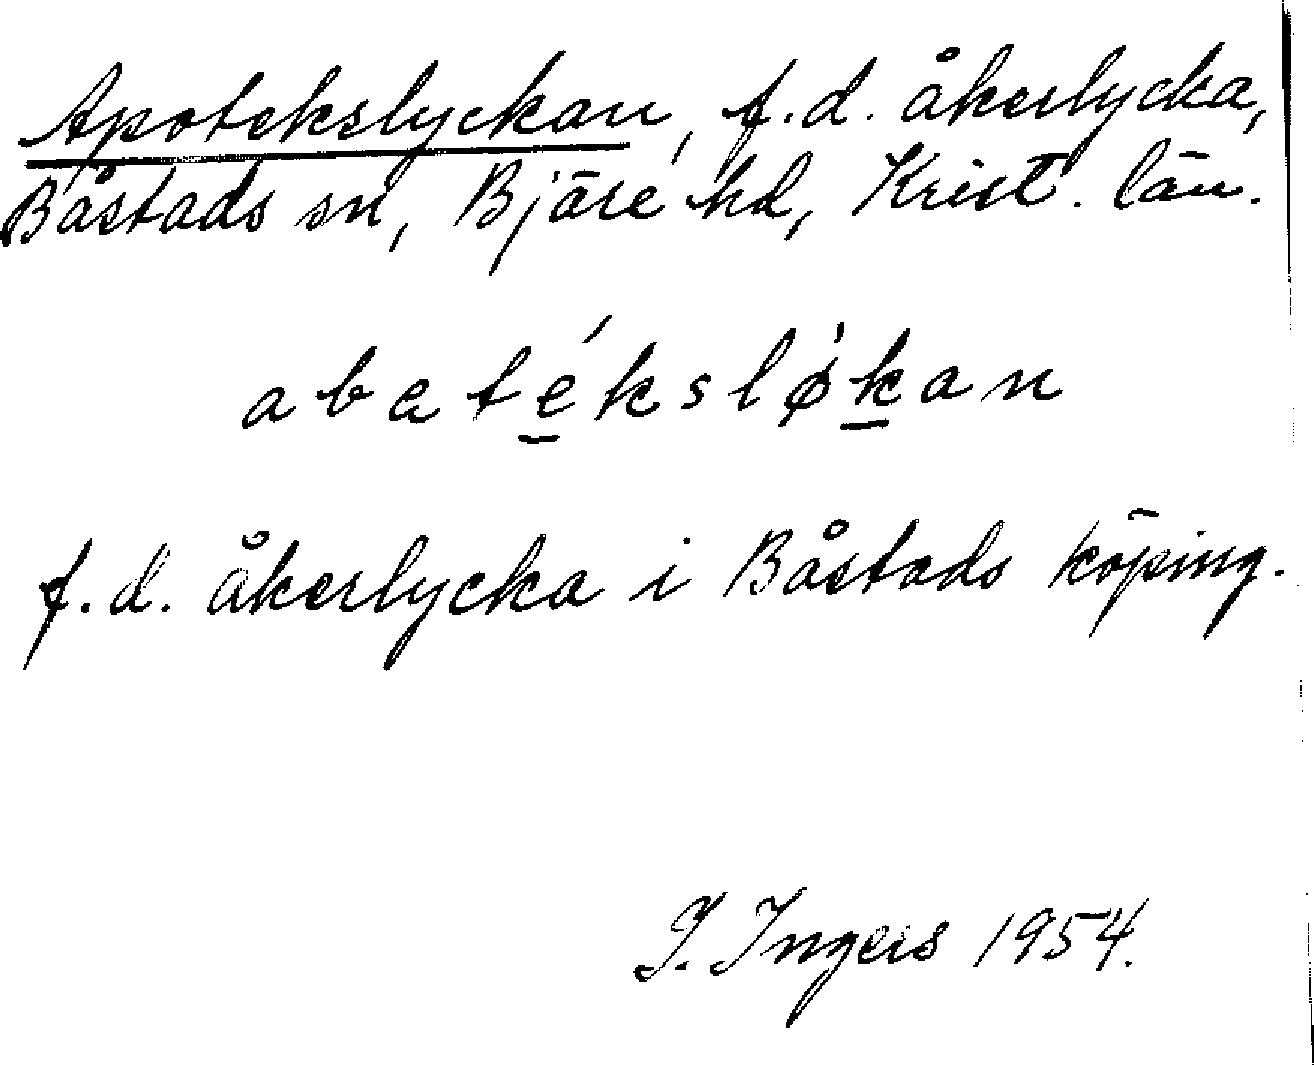 Apotekslyckan, f.d. åkerlycka,
Båstads sn, Bjäre hd, Krist. län.
abatéksløkan
f.d. åkerlycka i Båstads köping.
I. Ingers 1954.